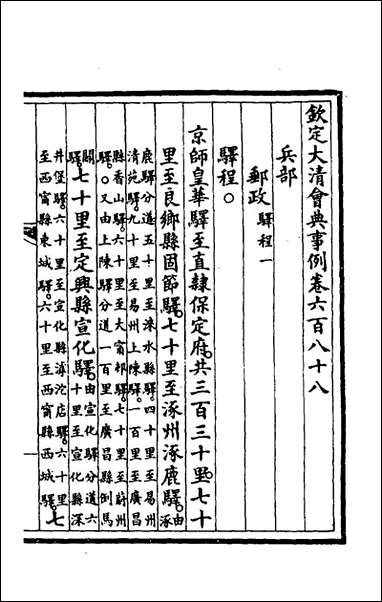 欽定大清會典事例卷六百八十八
兵部
郵政 驛程一
驛程○
京師皇華驛至直隸保定府共三百三十里七十
里至良鄉縣固節驛七十里至涿州涿鹿驛由涿
鹿驛分道五十里至淶水縣驛四十里至易州
清苑驛九十里至易州上陳驛一百里至廣昌
縣香山驛六十里至大甯邨驛七十里至蔚州
驛○又由上陳驛分道一百里至廣昌縣倒馬
關驛七十里至定興縣宣化驛由宣化驛分道六
十里至宣化縣深
井堡驛六十里至宣化縣滹沱店驛六十里
至西甯縣東城驛六十里至西甯縣西城驛七